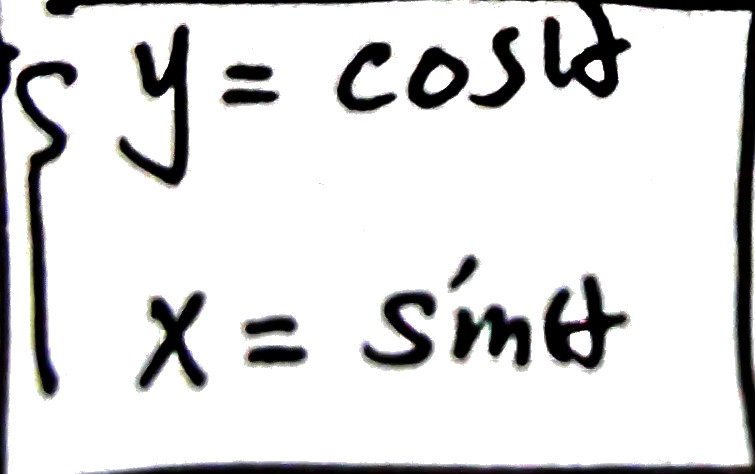 y = cosθ
x = sinθ